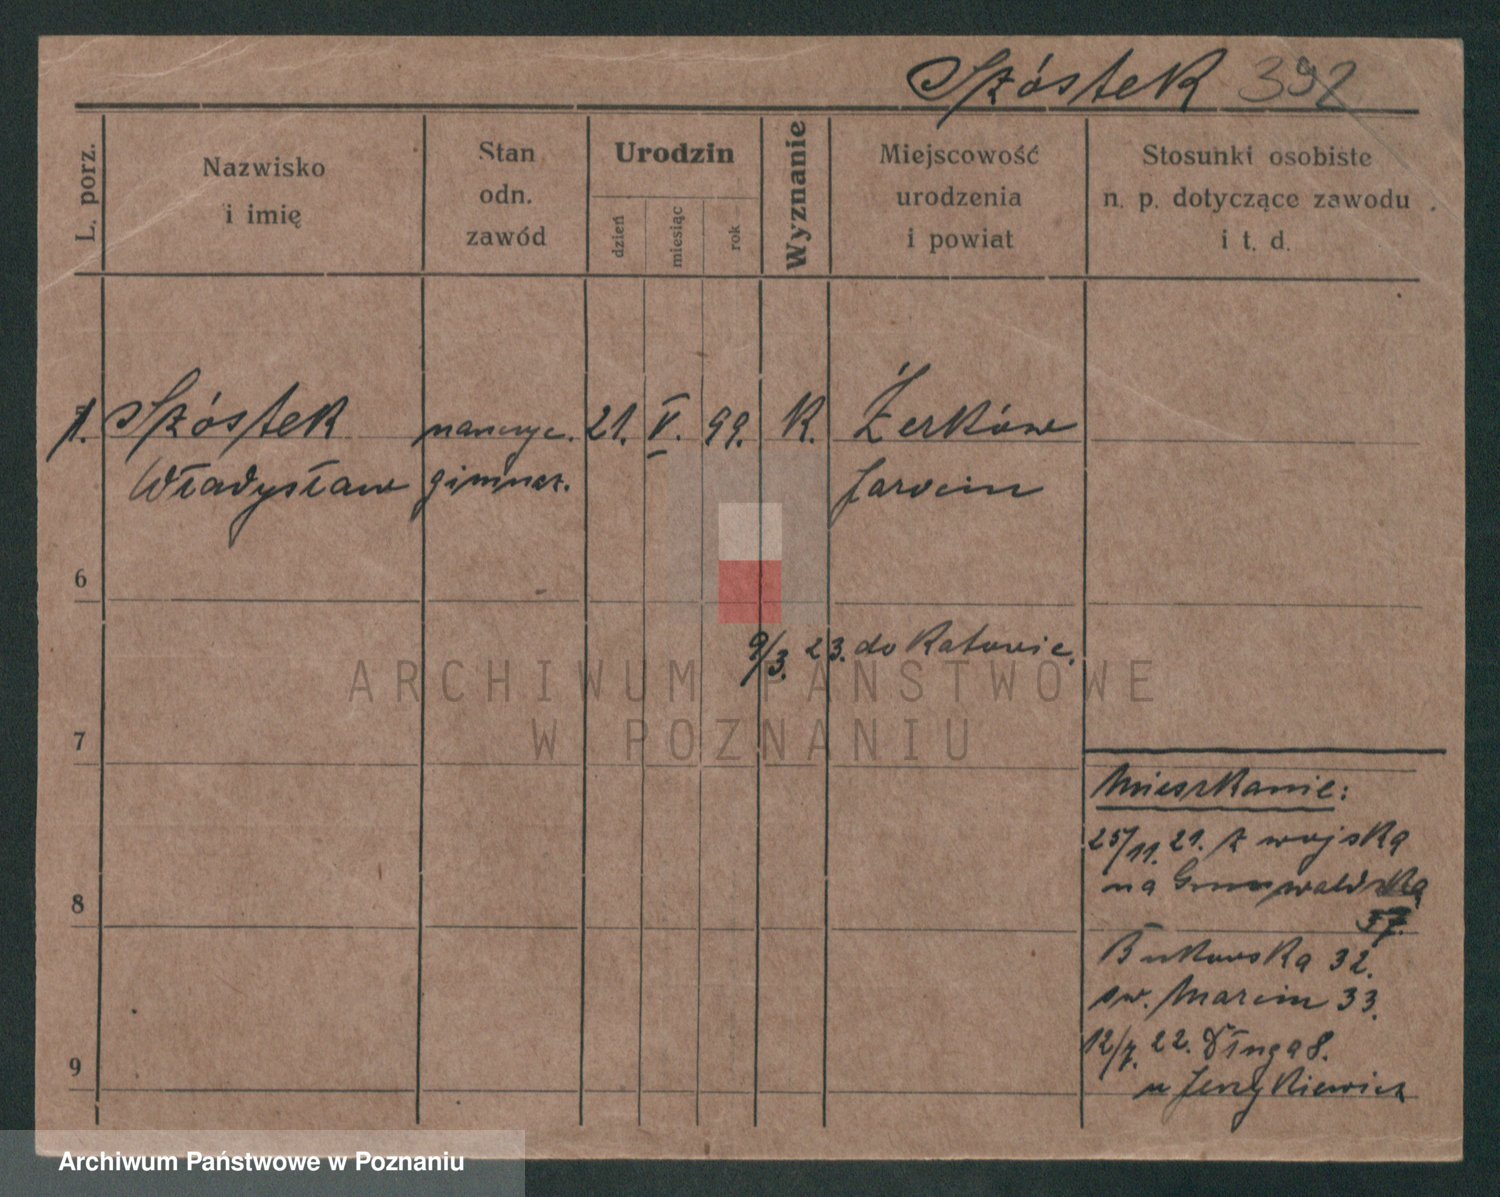 Szóstek 392
L. porz.
Nazwisko
i imię
Stan
odn.
zawód
Urodzin
dzień
miesiąc
rok
Wyznanie
Miejscowość
urodzenia
i powiat
Stosunki osobiste
n. p. dotyczące zawodu
i t. d.
1. Szóstek nauczyc. 21. V. 99. K. Żerków
Władysław gimnaz. Jarocin
6
9/3. 23. do Katowic.
ARCHIWUM PAŃSTWOWE
W POZNANIU
7
Mieszkanie:
25/11. 21. z wojska
na Grunwaldzka
37.
8
Bukowska 32.
św. Marcin 33.
12/7. 22. Długa 8.
u Jerzykiewicz
9
Archiwum Państwowe w Poznaniu